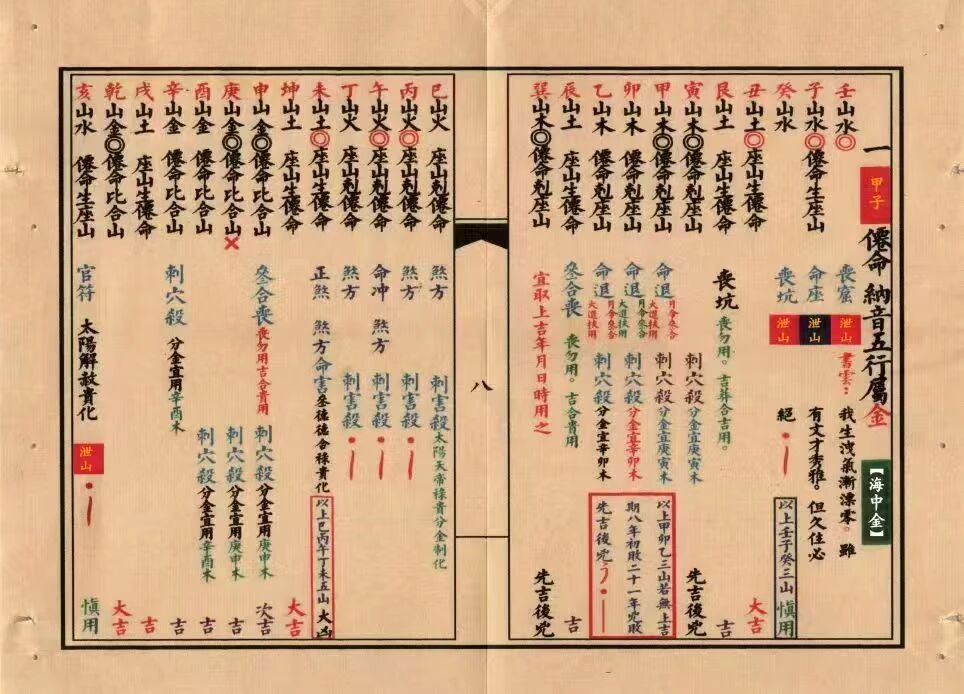 一 甲子 僊命 納音五行屬金 【海中金】
壬山水◎ 喪窟 泄山 書雲：我生洩氣漸漂零。雖
子山水◎ 僊命生座山 命座 泄山 有文才秀雅。但久住必
癸山水 喪坑 泄山 絕 以上壬子癸三山 慎用
丑山土◎ 座山生僊命 大吉
艮山土 座山生僊命 喪坑 喪勿用。吉葬合吉用。 吉
寅山木◎ 僊命剋座山 刺穴殺 分金宜庚寅木 先吉後兇
甲山木◎ 僊命剋座山 命退 月令叁合大進扶用 刺穴殺 分金宜庚寅木 以上甲卯乙三山若無上吉
卯山木 僊命剋座山 命退 月令叁合大進扶用 刺穴殺 分金宜辛卯木 期八年初敗二十一年兇敗
乙山木 僊命剋座山 命退 月令叁合大進扶用 刺穴殺 分金宜辛卯木 先吉後兇
辰山土 座山生僊命 叄合喪 喪勿用。吉合貴用。 吉
巽山木◎ 僊命剋座山 宜取上吉年月日時用之 先吉後兇
八
巳山火 座山剋僊命 煞方 刺害殺 太陽天帝祿貴分金制化
丙山火◎ 座山剋僊命 煞方 刺害殺
午山火◎ 座山剋僊命 命冲 煞方 刺害殺
丁山火 座山剋僊命 煞方 刺害殺
未山土◎ 座山生僊命 正煞 煞方命害 叁德德合祿貴化 以上巳丙午丁未五山 大凶
坤山土 座山生僊命 大吉
申山金◎ 僊命比合山 叄合喪 喪勿用吉合貴用 刺穴殺 分金宜用庚申木 次吉
庚山金◎ 僊命比合山× 刺穴殺 分金宜用庚申木 吉
酉山金 僊命比合山 刺穴殺 分金宜用辛酉木 吉
辛山金 僊命比合山 刺穴殺 分金宜用辛酉木 吉
戌山土 座山生僊命 吉
乾山金◎ 僊命比合山 大吉
亥山水 僊命生座山 官符 太陽解赦貴化 泄山 慎用